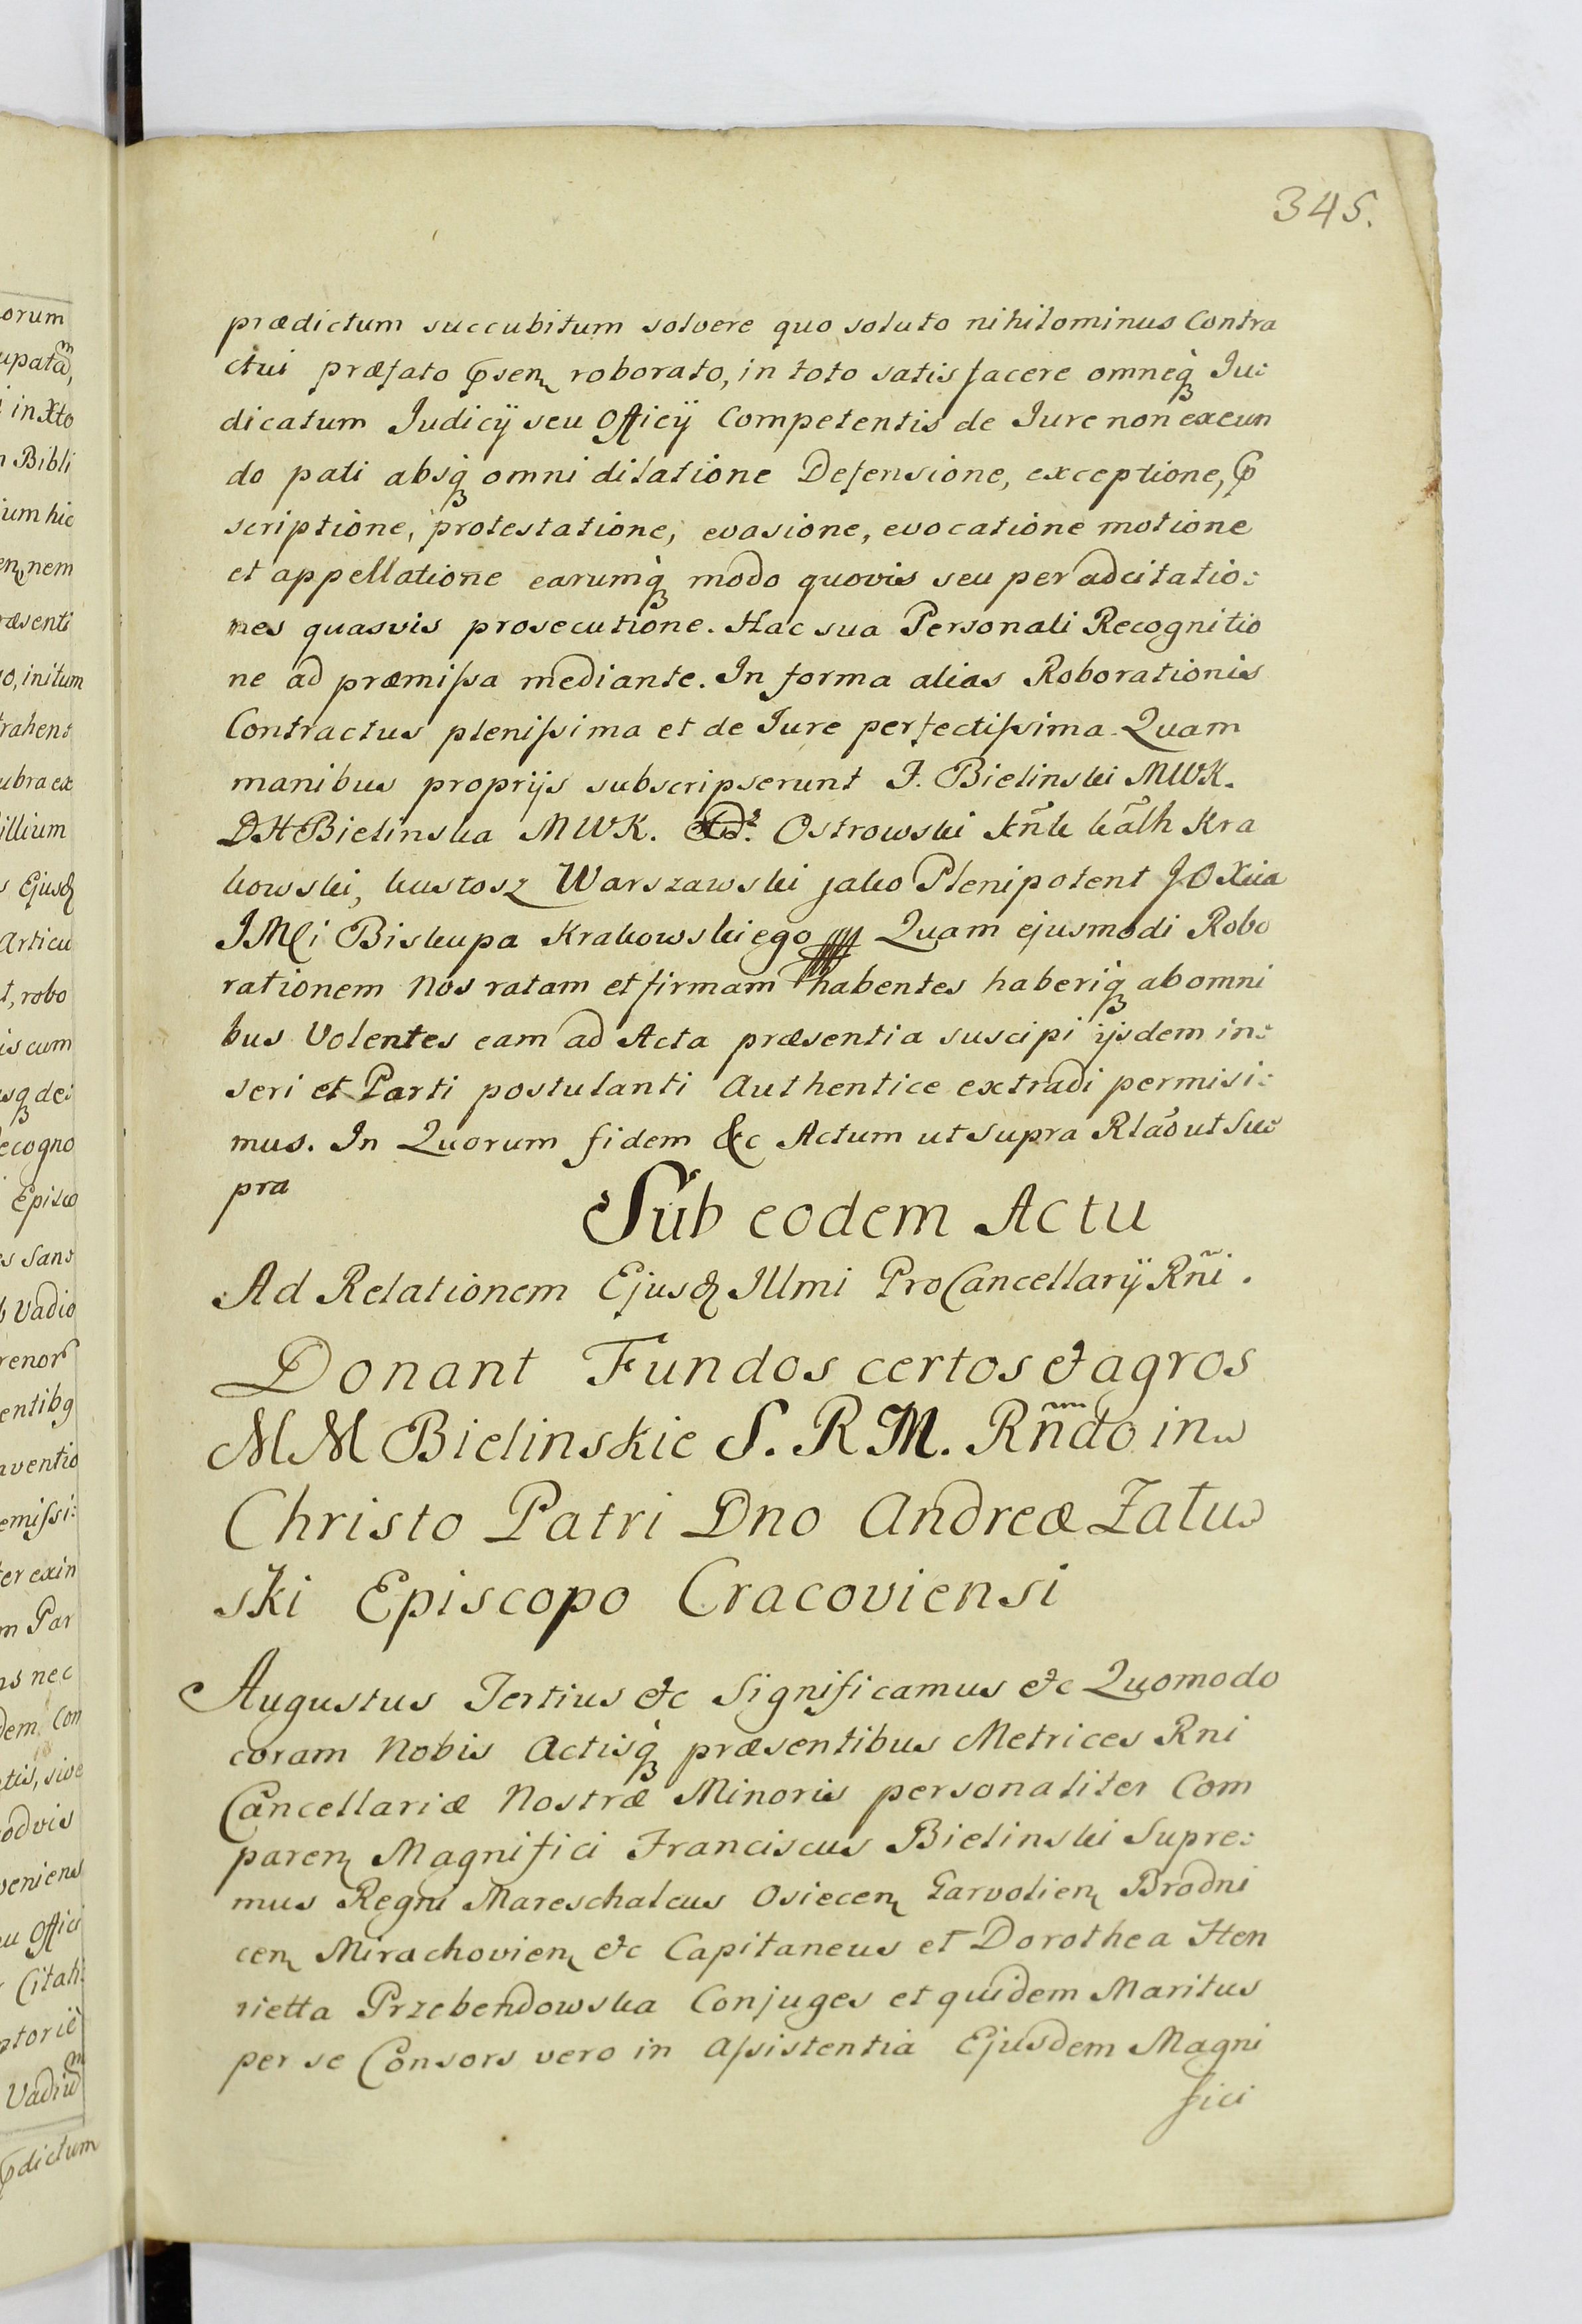 345.
prædictum succubitum solvere quo soluto nihilominus Contra
ctui præfato roborato, in toto satis facere omneq̀ Iu:
dicatum Judicÿ seu Officÿ Competentis de Iure non exeun
do pati absq̀ omni dilatione Defensione, exceptione,
scriptione, protestatione, evasione, evocatione motione
et appellatione earumq̀ modo quovis seu per adcitatio:
nes quasvis prosecutione. Hac sua Personali Recognitio
ne ad præmissa mediante. In forma alias Roborationis
Contractus plenissima et de Iure perfectissima. Quam
manibus proprijs subscripserunt F. Bielinski MWK.
DH Bielinska MWK. Ostrowski Kra
kowski, kustosz Warszawski jako Plenipotent JO Xcia
JMci Biskupa Krakowskiego Quam ejusmodi Robo
rationem Nos ratam et firmam habentes haberiq̀ ab omni
bus Volentes eam ad Acta præsentia suscipi ijsdem in:
seri et Parti postulanti Authentice extradi permisi:
mus. In Quorum fidem &c Actum ut supra Rlāo ut Su:
pra
Sub eodem Actu
Ad Relationem Ejusd Illmi ProCancellarÿ Rñi.
Donant Fundos certos et agros
MM Bielinskie S. R M. Rñdo in
Christo Patri Dno Andreæ Zału
ski Episcopo Cracoviensi
Augustus Tertius etc Significamus etc Quomodo
coram Nobis Actisq̀ præsentibus Metrices Rni
Cancellariæ Nostræ Minoris personaliter Com
paren Magnifici Franciscus Bielinski Supre:
mus Regni Mareschalcus Osiecen Garvolien Brodni
cen Mirachovien etc Capitaneus et Dorothea Hen
rietta Przebendowska Conjuges et quidem Maritus
per se Consors vero in Assistentia Ejusdem Magni
fici